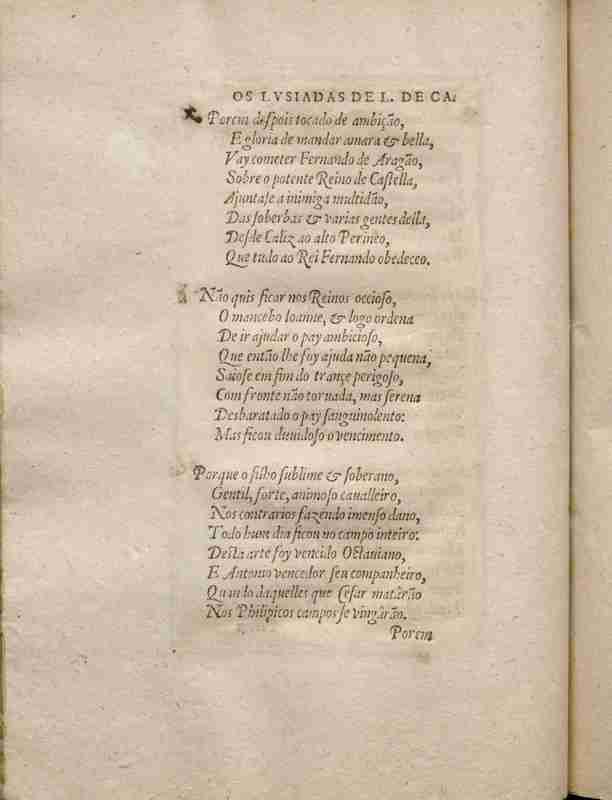 OS LVSIADAS DE L. DE CA.
Porem deſpois tocado de ambição,
E gloria de mandar amara & bella,
Vay cometer Fernando de Aragão,
Sobre o potente Reino de Caſtella,
Ajuntaſe a inimiga multidão,
Das ſoberbas & varias gentes della,
Deſde Caliz ao alto Perineo,
Que tudo ao Rei Fernando obedeceo.
Não quis ficar nos Reinos occioſo,
O mancebo Ioanne, & logo ordena
De ir ajudar o pay ambicioſo,
Que então lhe foy ajuda não pequena,
Saioſe em fim do trançe perigoſo,
Com fronte não toruada, mas ſerena
Desbaratado o pay ſanguinolento:
Mas ficou duuidoſo o vencimento.
Porque o filho ſublime & ſoberano,
Gentil, forte, animoſo caualleiro,
Nos contrarios fazendo imenſo dano,
Todo hum dia ficou no campo inteiro:
Deſta arte foy vencido Octauiano,
E Antonio vencedor ſeu companheiro,
Quando daquelles que Ceſar matârão
Nos Philipicos campos ſe vingârão.
Porem